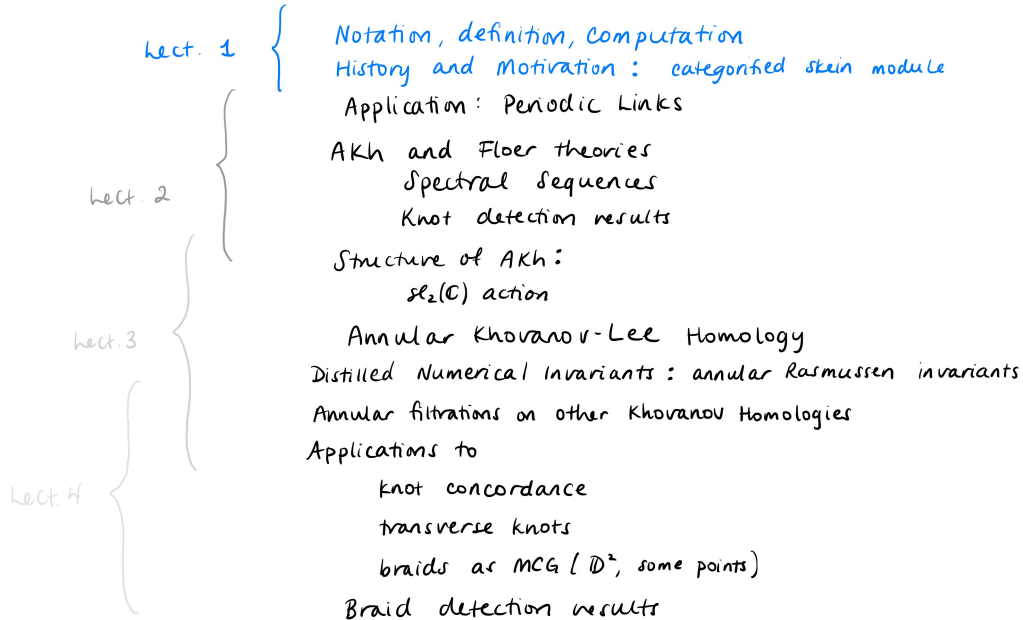 Lect. 1
Notation, definition, computation
History and Motivation : categorified skein module
Application : Periodic Links
AKh and Floer theories
Spectral Sequences
Lect. 2
Knot detection results
Structure of AKh :
sl₂(ℂ) action
Lect. 3
Annular Khovanov-Lee Homology
Distilled Numerical Invariants : annular Rasmussen invariants
Annular filtrations on other Khovanov Homologies
Applications to
Lect. 4
knot concordance
transverse knots
braids as MCG ( 𝔻², some points)
Braid detection results